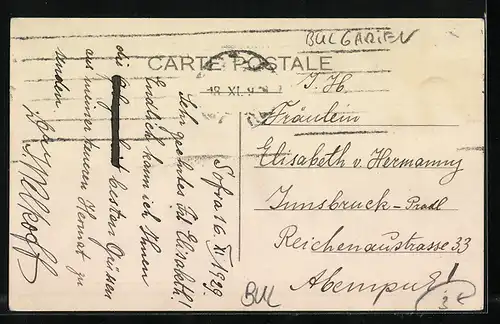 BULGARIEN
CARTE POSTALE
18 XI 9
Sofia 16. XI. 1929.
Sehr geehrtes Frl. Elisabeth!
Endlich kann ich Ihnen
die besten Grüssen
aus meiner teueren Heimat zu
senden
I. H.
Fräulein
Elisabeth v. Hermanny
Innsbruck - Pradl
Reichenaustrasse 33
BUL
3€